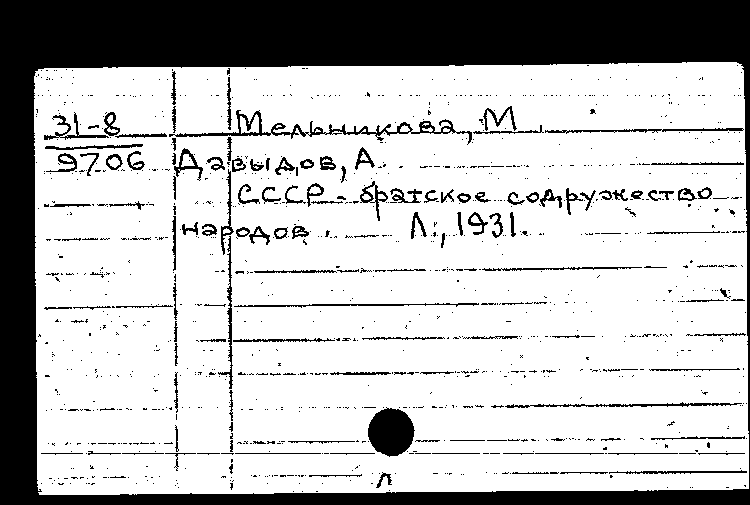 31-8 Мельникова, М.
9706 Давыдов, А.
СССР - братское содружество
народов. Л., 1931.
л